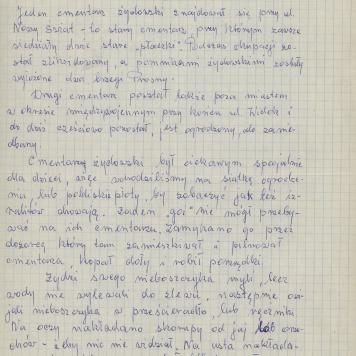 Jeden cmentarz żydowski znajdował się przy ul.
Nowy Świat - to stary cmentarz przy którym zawsze
siedziały dwie stare "staczki". Podczas okupacji zo-
stał zlikwidowany, a pomnikami żydowskimi zostały
wyłożone dwa brzegi Prosny.
Drugi cmentarz powstał także poza miastem
w okresie międzywojennym przy końcu ul. Widok i
do dziś częściowo pozostał, jest ogrodzony, ale zanie-
dbany.
Cmentarz żydowski był ciekawym specjalnie
dla dzieci, więc wchodziliśmy na siatkę ogrodze-
nia lub pobliskie płoty, by zobaczyć jak też iz-
raelitów chowają. Żaden "goj" nie mógł przeby-
wać na ich cmentarzu. Zamykano go przez
dozorcę który tam zamieszkiwał i pilnował
cmentarza, kopał doły i robił porządki.
Żydzi swego nieboszczyka myli, lecz
wody nie wylewali do zlewu, następnie owi-
jali nieboszczyka w prześcieradło, lub ręczniki.
Na oczy nakładano skorupy od jaj lub orze-
chów - żeby nic nie widział. Na usta nakłada-